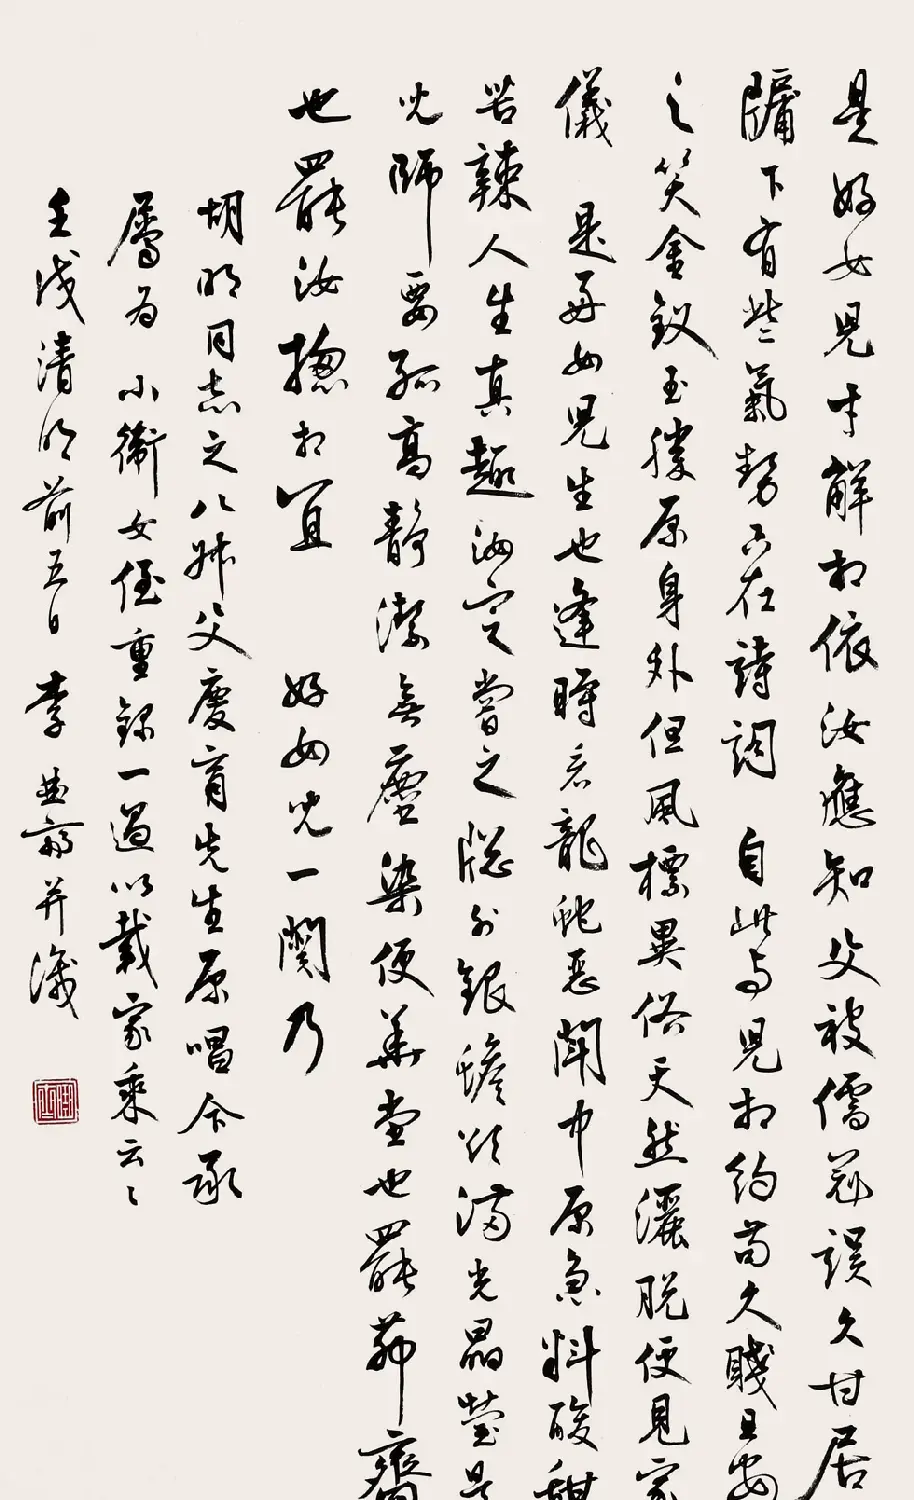 是好女兒才解相依汝應知父被儒冠誤久甘居
牖下有些氣勢只在詩詞　自此與兒相約苟久賤且安
之笑金釵玉勝原身外但風標異俗天然灑脫便見家
儀　是好女兒生也逢時君龍蛇惡鬪中原急料酸甜
苦辣人生真趣汝定嘗之　窗外銀蟾欲滿光晶瑩是
兒師要孤高靜潔無塵染便華堂也罷茆齋
也罷汝總相宜　好女兒一闋乃
胡明同志之八叔父慶育先生原唱今承
屬為小衛女侄重錄一過以載家乘云云
壬戌清明前五日　李　并識